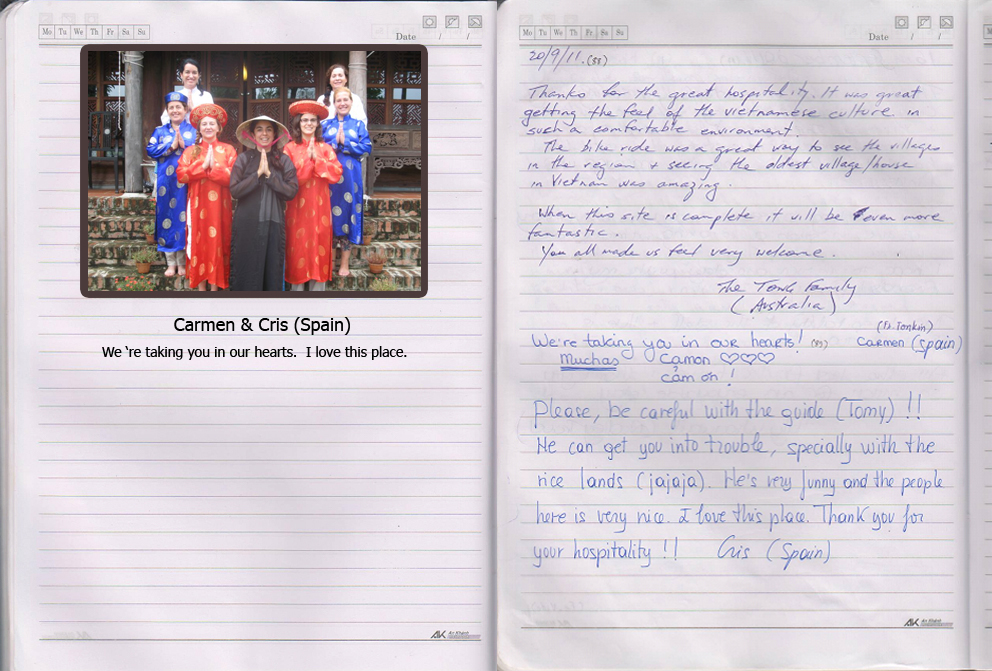 Mo Tu We Th Fr Sa Su
Date / /
Carmen & Cris (Spain)
We 're taking you in our hearts. I love this place.
AK An Khánh
Mo Tu We Th Fr Sa Su
Date / /
20/9/11.
Thanks for the great hospitality. It was great
getting the feel of the vietnamese culture in
such a comfortable environment.
The bike ride was a great way to see the villages
in the region + seeing the oldest village/house
in Vietnam was amazing.
When this site is complete it will be even more
fantastic.
You all made us feel very welcome.
The Tong Family
(Australia)
We're taking you in our hearts!
(Ex. Tonkin)
CARMEN (Spain)
Muchas Camon ♡♡♡
cảm ơn !
Please, be careful with the guide (Tomy) !!
He can get you into trouble, specially with the
rice lands (jajaja). He's very funny and the people
here is very nice. I love this place. Thank you for
your hospitality !! Cris (Spain)
AK An Khánh